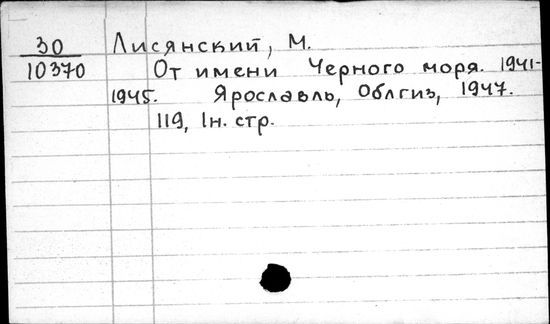 30 Лисянский, М.
10370 От имени Черного моря. 1941-
1945. Ярославль, Облгиз, 1947.
119, 1н. стр.